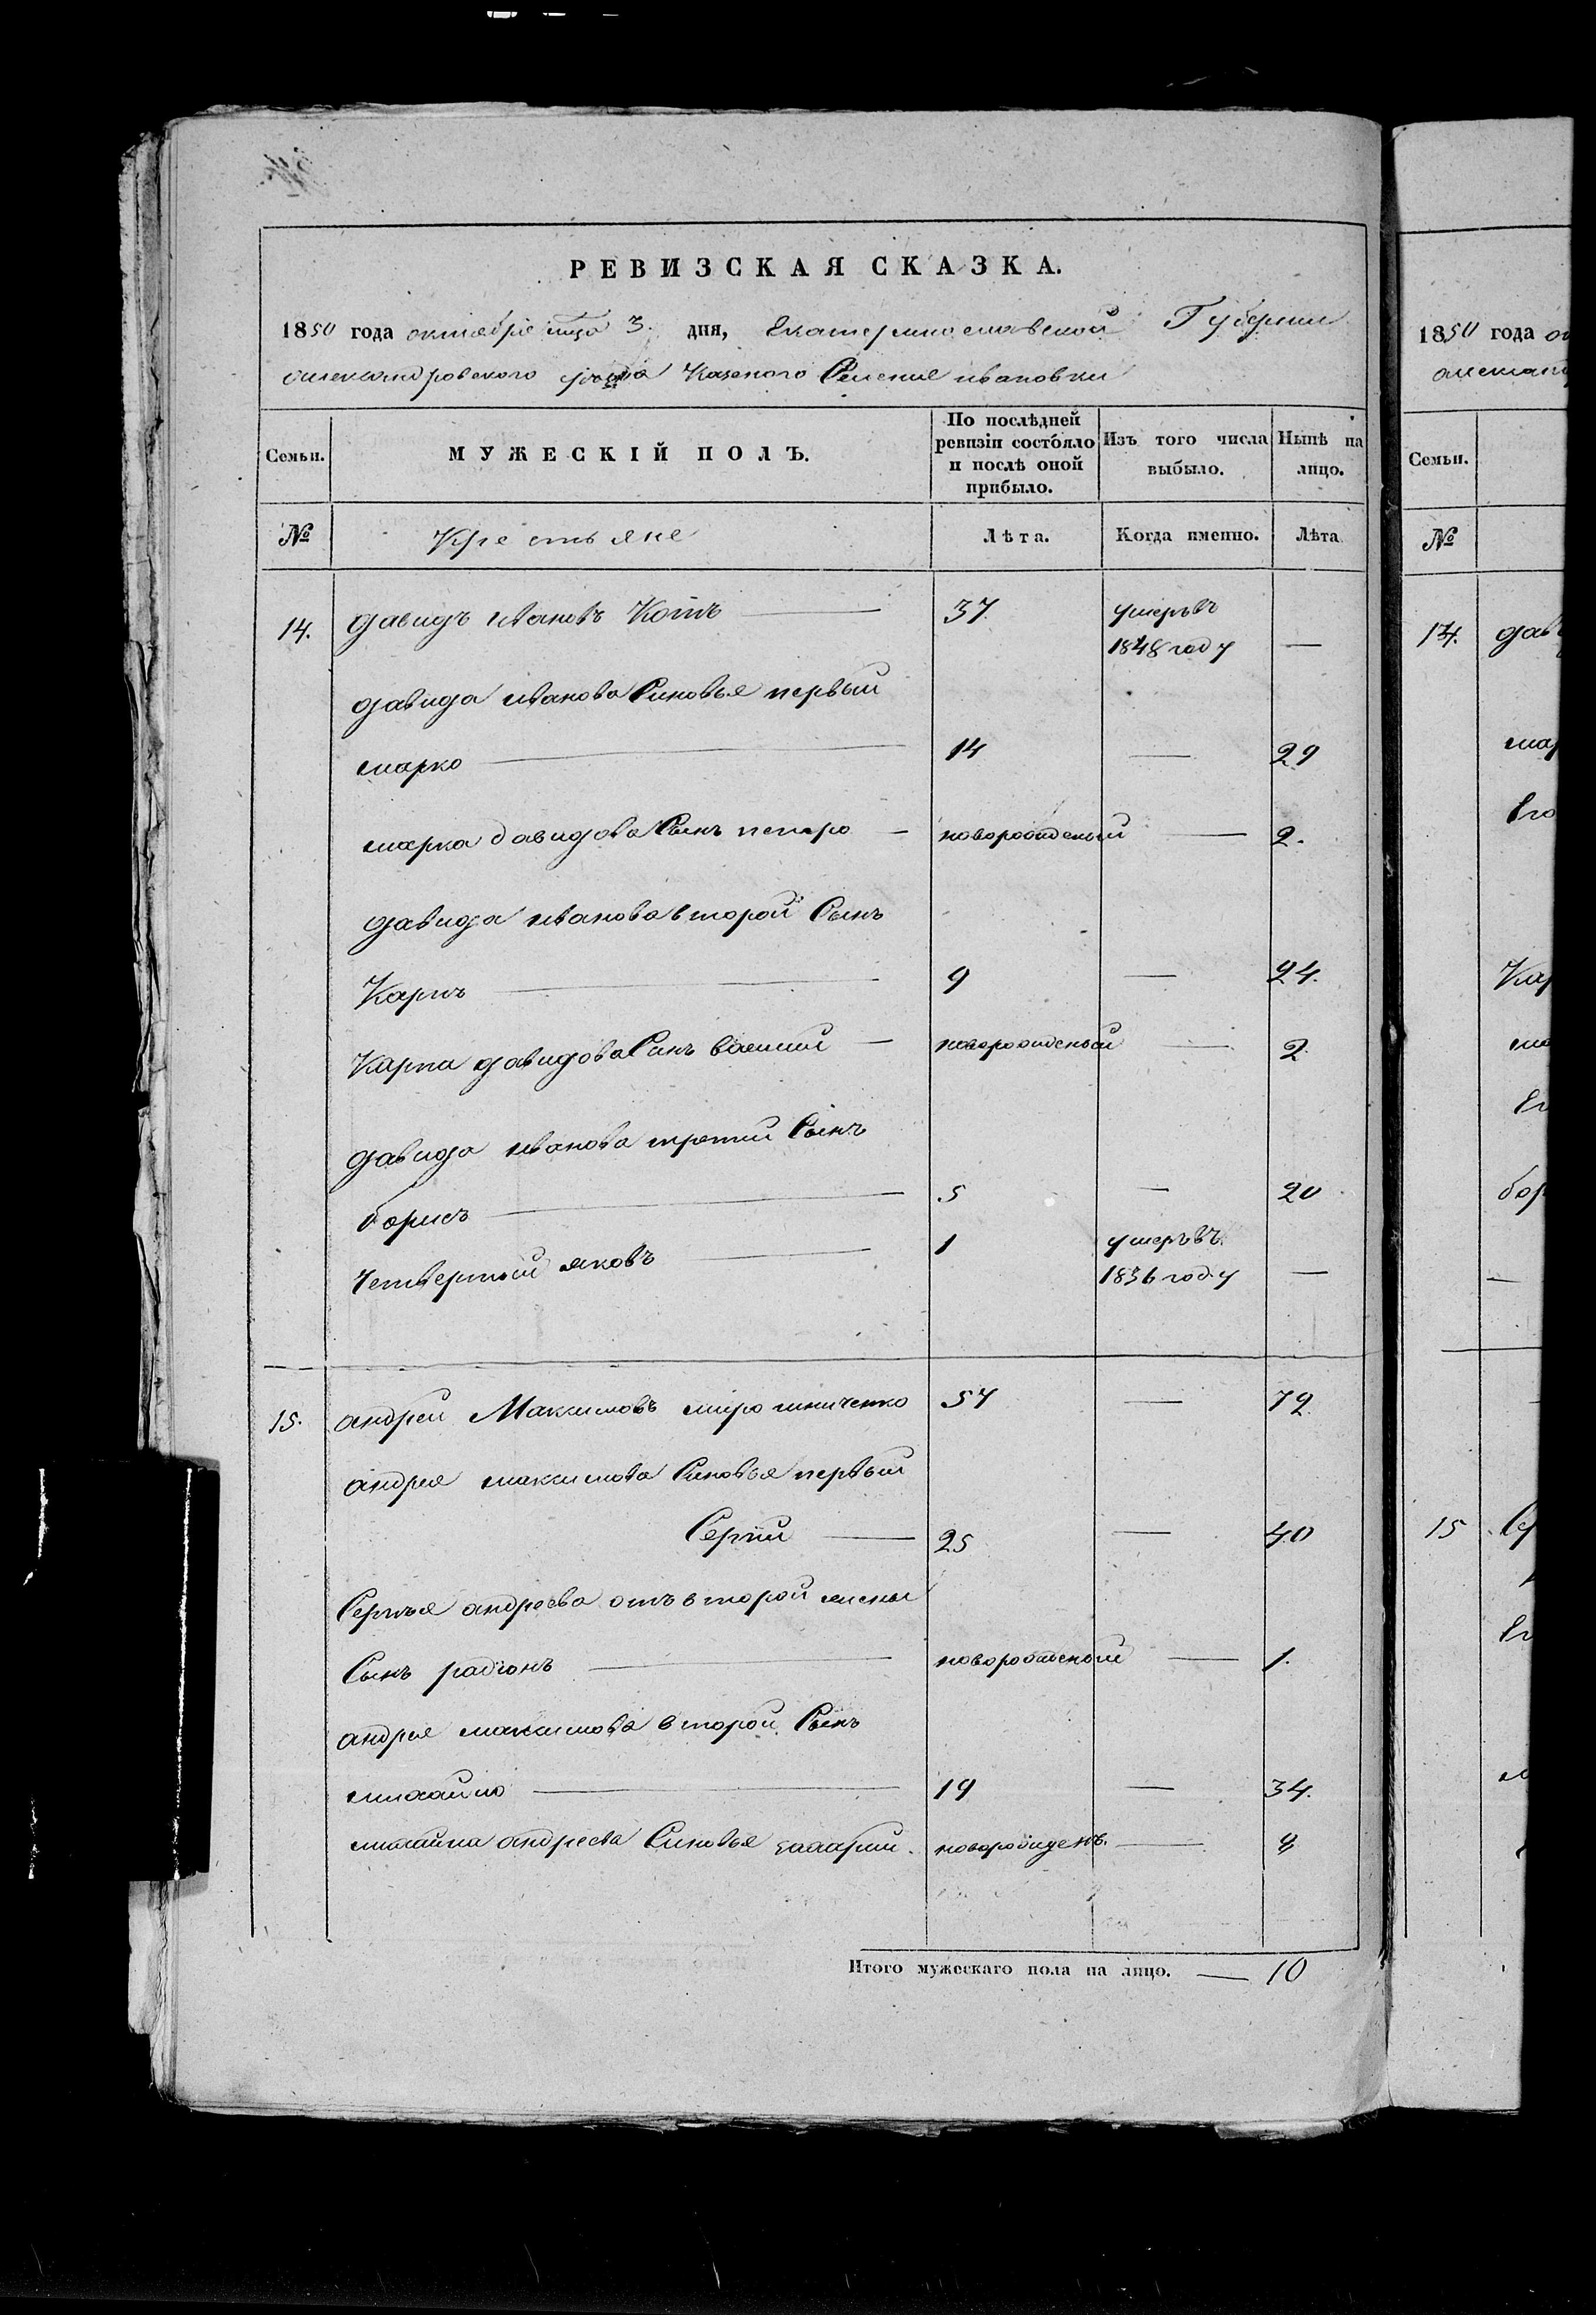 РЕВИЗСКАЯ СКАЗКА.
1850 года октября мца 3. дня, Екатеринославской Губернии
александровского уезда Казеного Селения ивановки
Семьи. МУЖЕСКІЙ ПОЛЪ. По послѣдней ревизіи состояло и послѣ оной прибыло. Изъ того числа выбыло. Нынѣ на лицо.
№ Крестьяне Лѣта. Когда именно. Лѣта
14. давидъ ивановъ Котъ — 37. умеръ въ
1848 году —
давида иванова Синовья первый
марко — 14 — 29
марка давидова Сынъ петро — новорожденый — 2.
давида иванова второй Сынъ
Карпъ — 9 — 24.
Карпа давидова Синъ василий — новорожденый — 2.
давида иванова третий Сынъ
борисъ — 5 — 20
Четвертый яковъ — 1 умеръ въ
1836 году —
15. андрей Максимовъ мирошниченко 57 — 72
андрея максимова Синовья первый
Сергий — 25 — 40
Сергья андреева отъ второй жены
Сынъ радіонъ — новорожденый — 1.
андрея максимова второй Сынъ
михайло — 19 — 34.
михайла андреева Синовья захарий. новорожденъ. — 8
Итого мужескаго пола на лицо. — 10
1850 года
Семьи.
№
14.
15